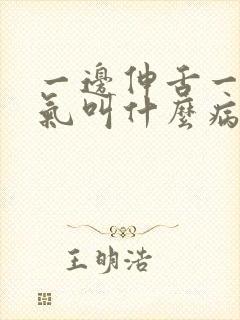 一邊伸舌一
氣叫什麼病
王明浩